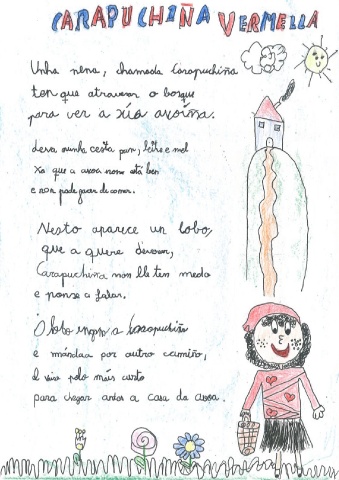 CARAPUCHIÑA VERMELLA
Unha nena, chamada Carapuchiña
ten que atravesar o bosque
para ver a súa avoíña.
leva nunha cesta pan, leite e mel
xa que a avoa non está ben
e non pode facer de comer.
Nesto aparece un lobo,
que a quere devorar,
Carapuchiña non lle ten medo
e ponse a falar.
O lobo a Carapuchiña
e mándaa por outro camiño,
el vai polo máis curto
para chegar antes a casa da avoa.